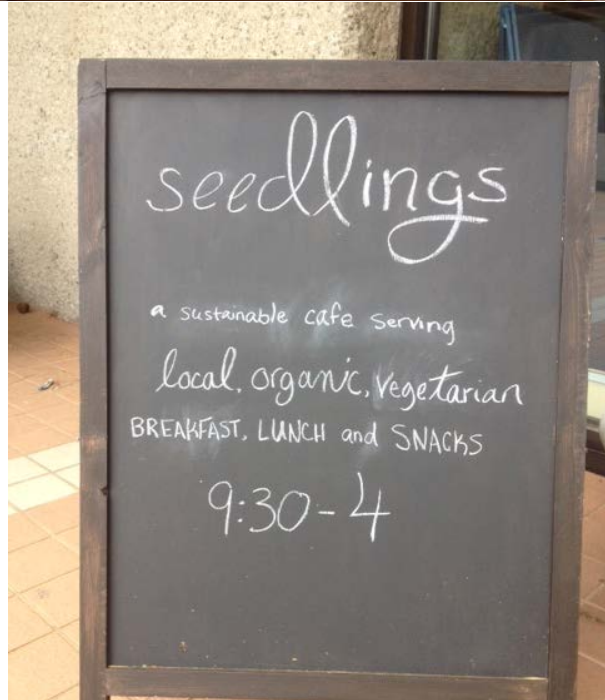 seedlings
a sustainable cafe serving
local, organic, vegetarian
BREAKFAST, LUNCH and SNACKS
9:30-4